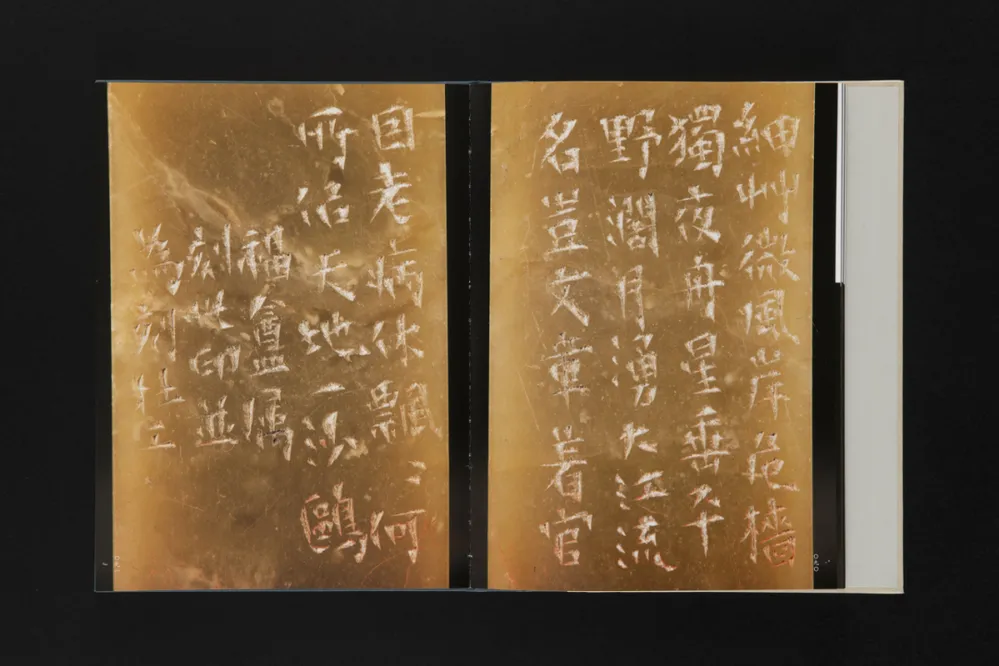 細艸微風岸危檣
獨夜舟星垂平
野濶月湧大江流
名豈文章着官
因老病休飄〻何
所佀天地一沙鷗
福盦属
刻此印並
為刻杜工